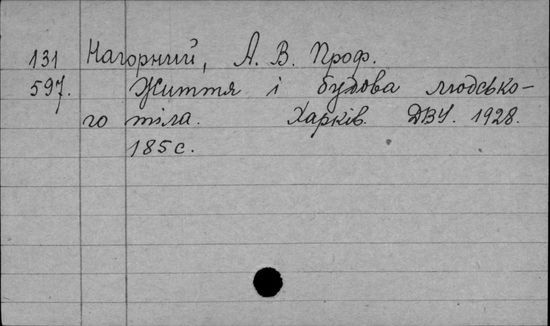 131 Нагорний, А. В. Проф.
597. Життя і будова людсько-
го тіла. Харків. ДВУ. 1928.
185 с.